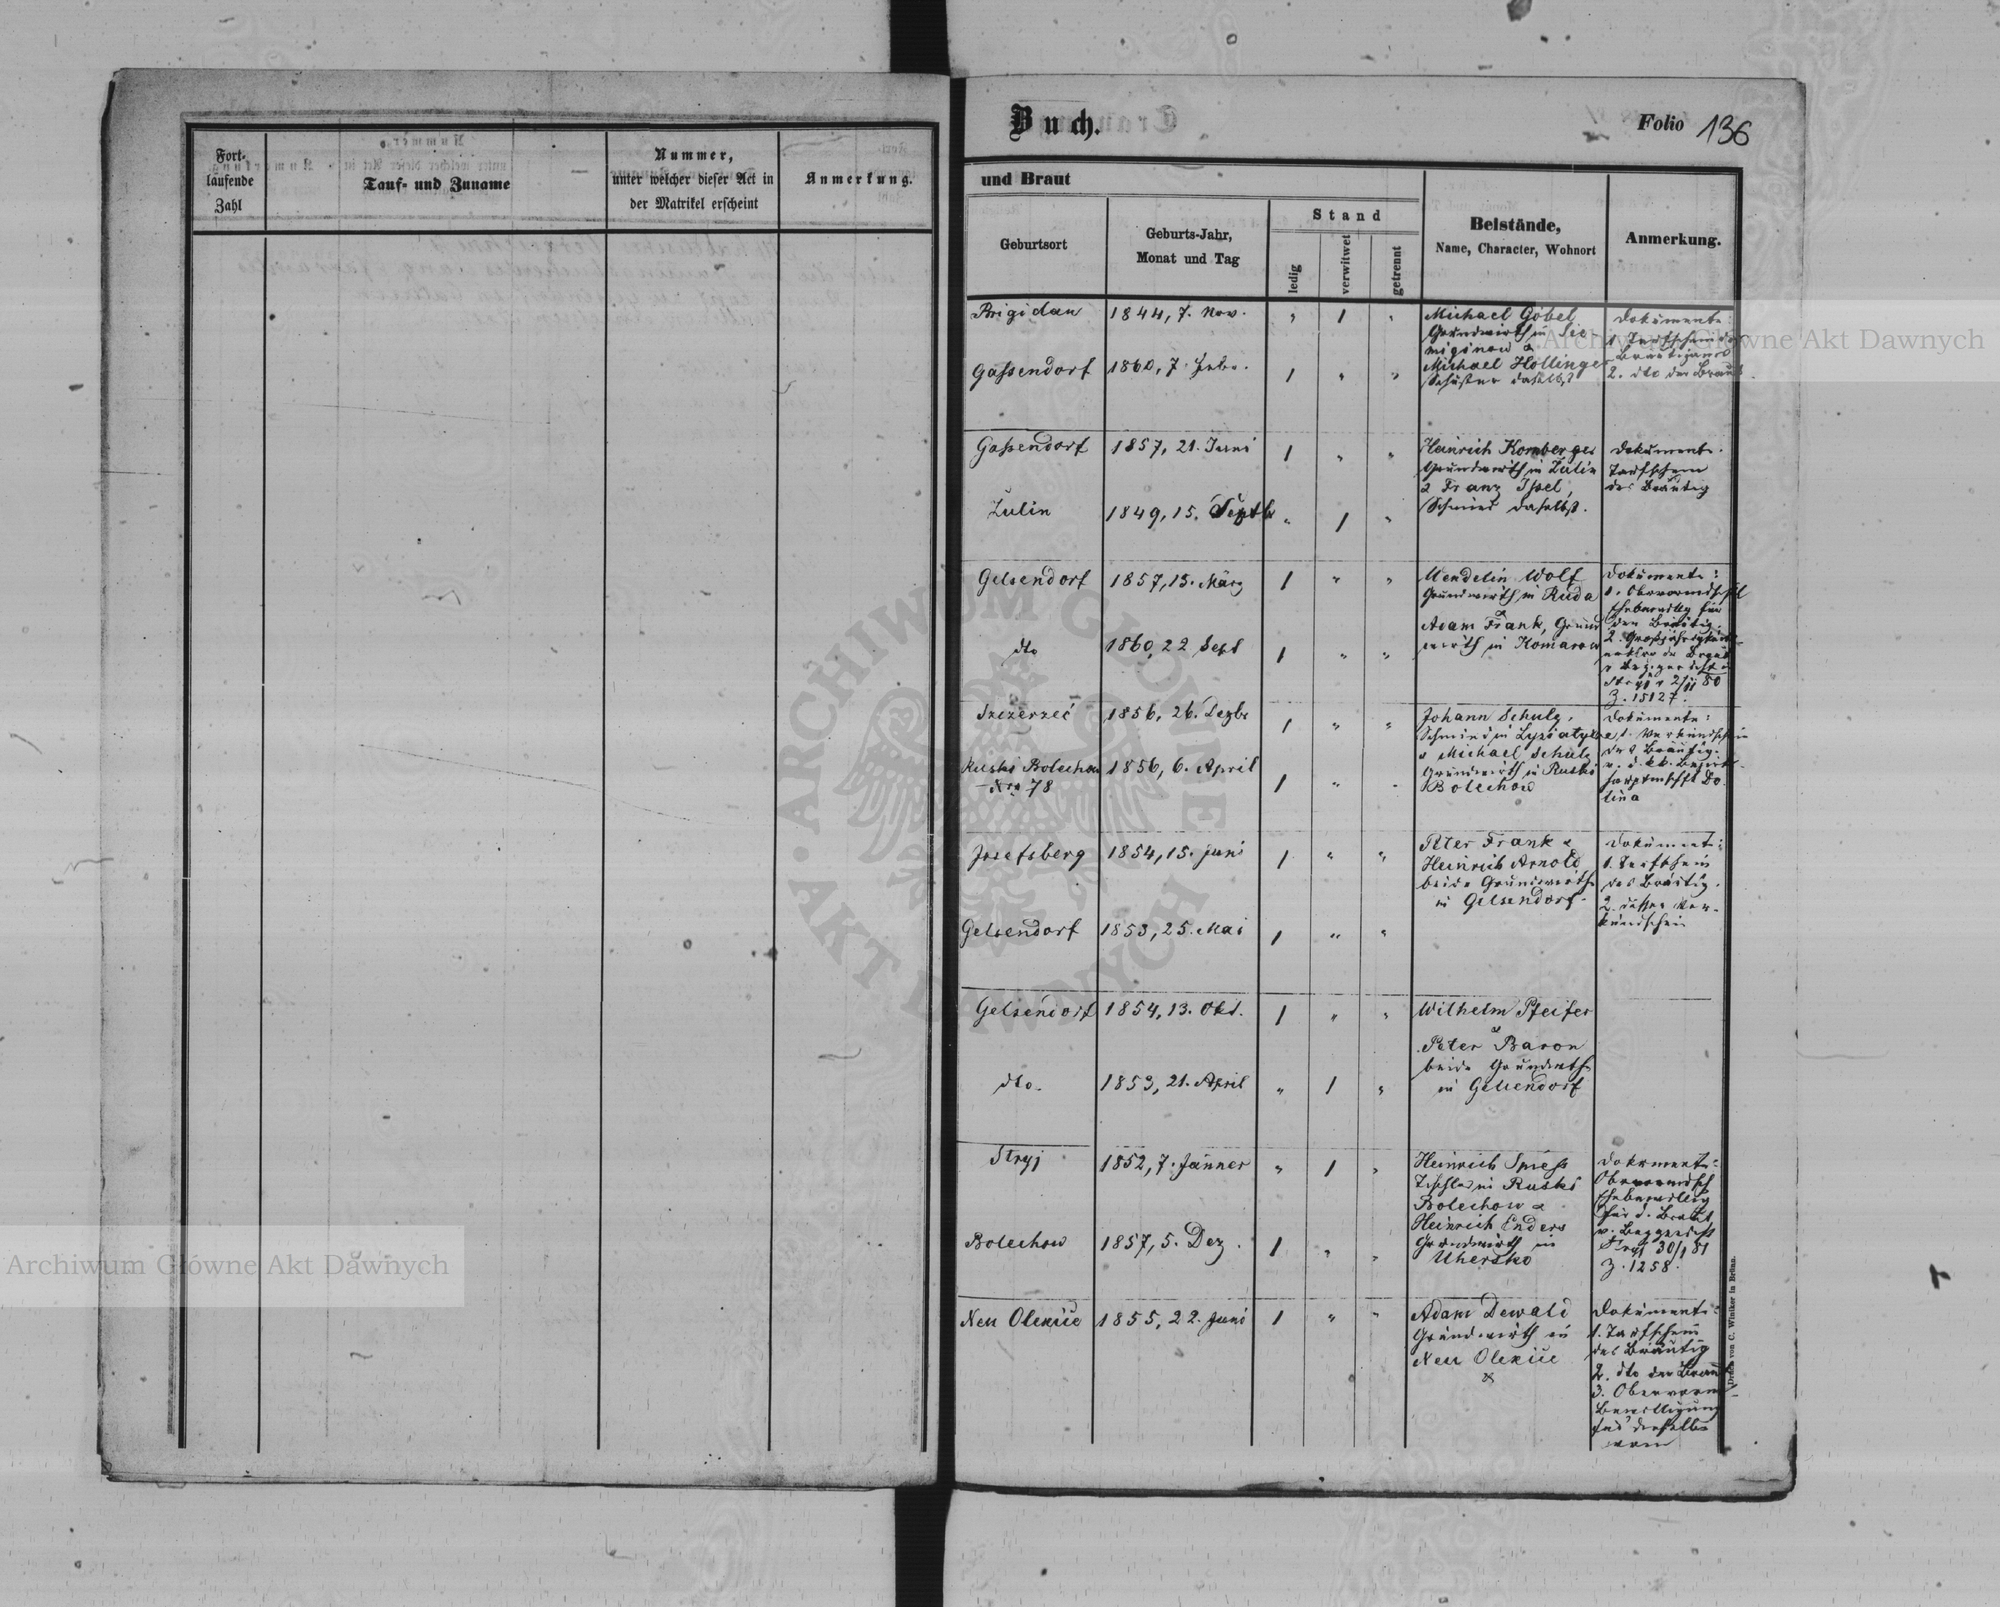 Fort-
laufende
Zahl
Tauf- und Zuname
Nummer,
unter welcher dieser Act in
der Matrikel erscheint
Anmerkung.
Buch.
Folio 136
und Braut
Geburtsort
Geburts-Jahr,
Monat und Tag
Stand
ledig
verwitwet
getrennt
Beistände,
Name, Character, Wohnort
Anmerkung.
Brigidau
1844, 7. Nov.
" 1 "
Michael Göbel
Grundwirth in Sie-
Michael Hollinger
Schuster daselbst
Dokumente:
1. Taufschein d.
Bräutigams
2. dto der Braut
Gassendorf
1860, 7. Febr.
1 " "
Gassendorf
1857, 21. Juni
1 " "
Heinrich Komberger
Grundwirth in Zulin
& Franz Issel,
Schmied daselbst.
Dokumente.
Taufschein
des Bräutig
Zulin
1849, 15. Septb
" 1 "
Gelsendorf
1857, 15. März
1 " "
Wendelin Wolf
Grundwirth in Ruda
&
Adam Frank, Grund
wirth in Komarow
Dokumente:
1. Obervormdschftl
Ehebewillg für
den Bräutig.
2. Großjährigkeits-
Z. 15127.
dto
1860, 22 Sept
1 " "
Szczerzeć
1856, 26. Dezbr
1 " "
Johann Schulz,
Schmied in Lysiatycze
& Michael Schulz
Grundwirth in Ruski
Bolechow
Dokumente:
1. Verkündschein
des Bräutig.
v. d. k.k. Bezirks-
hauptmschft Do-
lina
Ruski Bolechow
Nro 78
1856, 6. April
1 " "
Josefsberg
1854, 15. Juni
1 " "
Peter Frank &
Heinrich Arnold
beide Grundwirthe
in Gelsendorf.
Dokumente:
1. Taufschein
des Bräutig.
2. dessen Ver-
kündschein
Gelsendorf
1853, 25. Mai
1 " "
Gelsendorf
1854, 13. Okt.
1 " "
Wilhelm Pfeifer
&
Peter Baron
beide Grundwirthe
in Gelsendorf
dto.
1853, 21. April
" 1 "
Stryj
1852, 7. Jänner
" 1 "
Heinrich Spiess
Tischler in Ruski
Bolechow &
Heinrich Enders
Grundwirth in
Uhersko
Dokumente:
Obervormdsch
Ehebewillig
für d. Braut
v. Bezgericht
Stryj 30/1 81
Z. 1258.
Bolechow
1857, 5. Dez.
1 " "
Neu Olexice
1855, 22. Juni
1 " "
Adam Dewald
Grundwirth in
Neu Olexice
&
Dokumente:
1. Taufschein
des Bräutig
2. dto der Braut
3. Obervorm
Bewilligung
für dieselbe
vom
Druck von C. Winiker in Brünn.
Archiwum Główne Akt Dawnych
Archiwum Główne Akt Dawnych
ARCHIWUM GŁÓWNE
AKT DAWNYCH